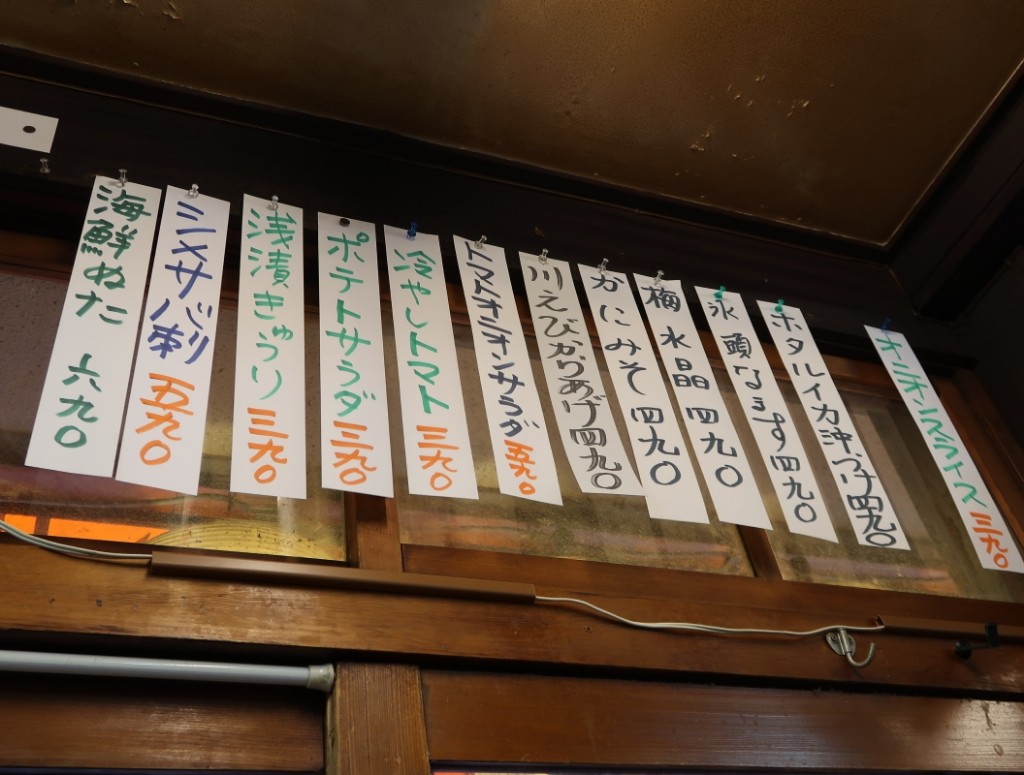 オニオンスライス 三九〇
ホタルイカ沖づけ 四九〇
氷頭なます 四九〇
梅水晶 四九〇
かにみそ 四九〇
川えびからあげ 四九〇
トマトオニオンサラダ 五九〇
冷やしトマト 三九〇
ポテトサラダ 三九〇
浅漬きゅうり 三九〇
シメサバ刺 五九〇
海鮮ぬた 六九〇